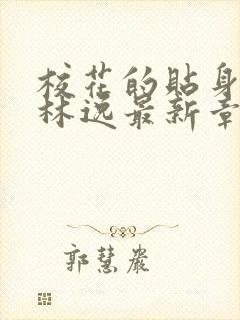 校花的贴身
林逸最新章
郭慧岩